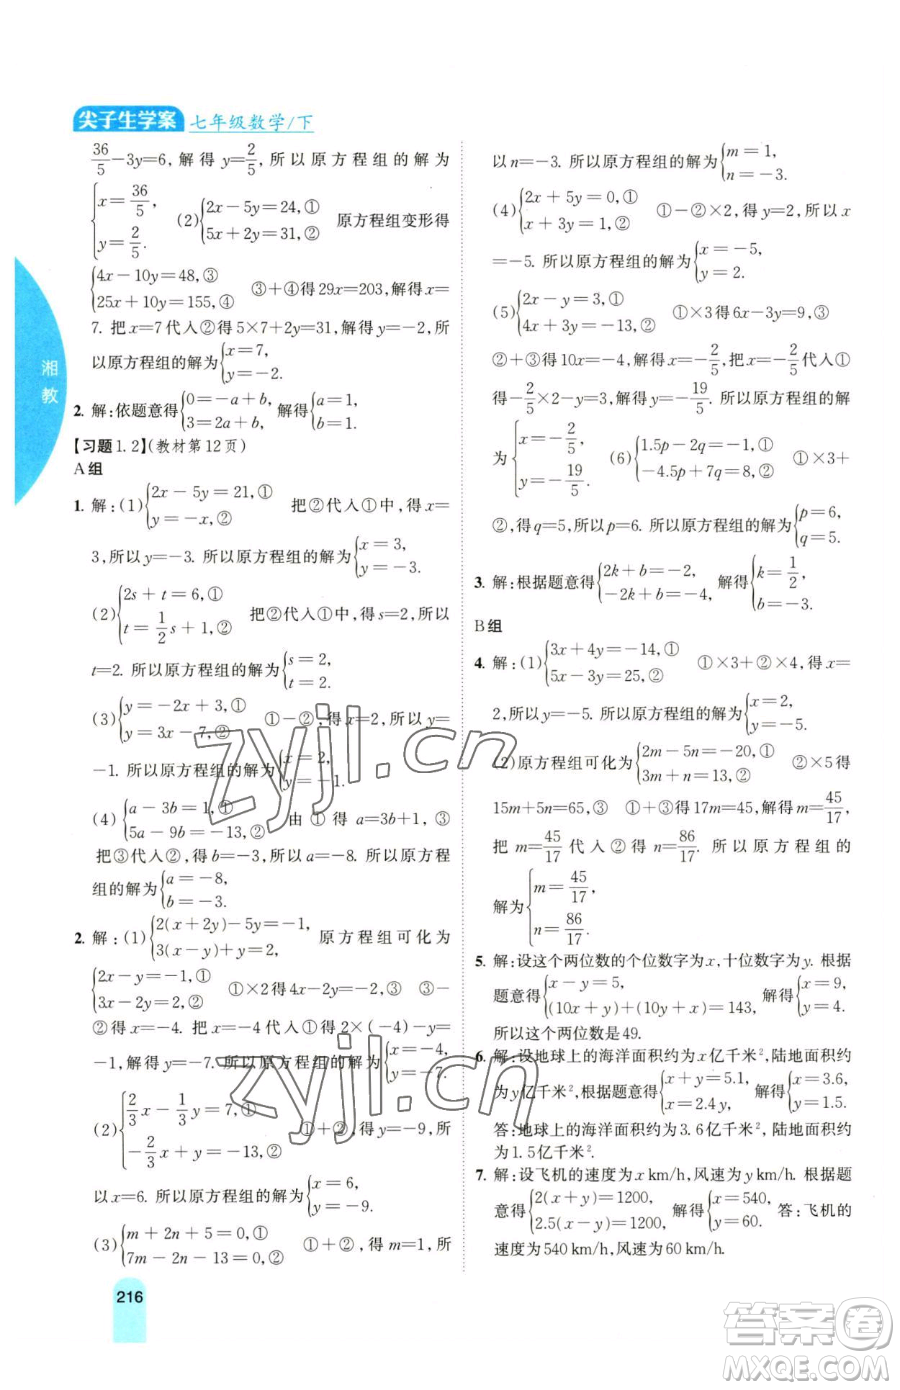 尖子生学案 七年级数学/下
36/5−3y=6,解得y=2/5,所以原方程组的解为
{x=36/5, y=2/5. (2){2x−5y=24,① 5x+2y=31,② 原方程组变形得
{4x−10y=48,③ 25x+10y=155,④ ③+④得29x=203,解得x=
7. 把x=7代入②得5×7+2y=31,解得y=−2,所
以原方程组的解为{x=7, y=−2.
2. 解:依题意得{0=−a+b, 3=2a+b, 解得{a=1, b=1.
【习题1.2】(教材第12页)
A组
1. 解:(1){2x−5y=21,① y=−x,② 把②代入①中,得x=
3,所以y=−3. 所以原方程组的解为{x=3, y=−3.
(2){2s+t=6,① t=1/2s+1,② 把②代入①中,得s=2,以
t=2. 所以原方程组的解为{s=2, t=2.
(3){y=−2x+3,① y=3x−7,② ①−②,得x=2,所以y=
−1. 所以原方程组的解为{x=2, y=−1.
(4){a−3b=1,① 5a−9b=−13,② 由①得a=3b+1,③
把③代入②,得b=−3,所以a=−8. 所以原方程
组的解为{a=−8, b=−3.
2. 解:(1){2(x+2y)−5y=−1, 3(x−y)+y=2, 原方程组可化为
{2x−y=−1,① 3x−2y=2,② ①×2得4x−2y=−2③ ③−
②得x=−4. 把x=−4代入①得2×(−4)−y=
−1,解得y=−7. 所以原方程组的解为{x=−4, y=−7.
(2){2/3x−1/3y=7,① −2/3x+y=−13,② ①+②,得y=−9,所
以x=6. 所以原方程组的解为{x=6, y=−9.
(3){m+2n+5=0,① 7m−2n−13=0,② ①+②,得m=1,所
216
湘教
以n=−3. 所以原方程组的解为{m=1, n=−3.
(4){2x+5y=0,① x+3y=1,② ①−②×2,得y=2,所以x
=−5. 所以原方程组的解为{x=−5, y=2.
(5){2x−y=3,① 4x+3y=−13,② ①×3得6x−3y=9,③
②+③得10x=−4,解得x=−2/5,把x=−2/5代入①
得−2/5×2−y=3,解得y=−19/5. 所以原方程组的解
为{x=−2/5, y=−19/5. (6){1.5p−2q=−1,① −4.5p+7q=8,② ①×3+
②,得q=5,所以p=6. 所以原方程组的解为{p=6, q=5.
3. 解:根据题意得{2k+b=−2, −2k+b=−4, 解得{k=1/2, b=−3.
B组
4. 解:(1){3x+4y=−14,① 5x−3y=25,② ①×3+②×4,得x=
2,所以y=−5. 所以原方程组的解为{x=2, y=−5.
(2)原方程组可化为{2m−5n=−20,① 3m+n=13,② ②×5得
15m+5n=65,③ ①+③得17m=45,解得m=45/17,
把m=45/17代入②得n=86/17. 所以原方程组的
解为{m=45/17, n=86/17.
5. 解:设这个两位数的个位数字为x,十位数字为y. 根据
题意得{x−y=5, (10x+y)+(10y+x)=143, 解得{x=9, y=4.
所以这个两位数是49.
6. 解:设地球上的海洋面积约为x亿千米²,陆地面积
约为y亿千米²,根据题意得{x+y=5.1, x=2.4y, 解得{x=3.6, y=1.5.
答:地球上的海洋面积约为3.6亿千米²,陆地面积约
为1.5亿千米².
7. 解:设飞机的速度为x km/h,风速为y km/h. 根据题
意得{2(x+y)=1200, 2.5(x−y)=1200, 解得{x=540, y=60. 答:飞机的
速度为540 km/h,风速为60 km/h.
zyjl.cn
zyjl.cn
答案圈
MXQE.COM